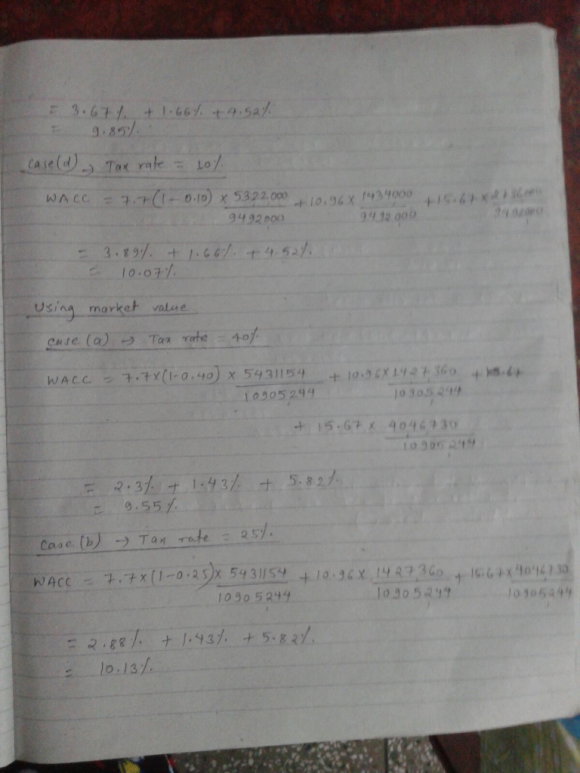 = 3.67% + 1.66% + 4.52%
= 9.85%
Case(d) → Tax rate = 10%
WACC = 7.7(1-0.10) × 5322000/9492000 + 10.96 × 1434000/9492000 + 15.67 × 2736000/9492000
= 3.89% + 1.66% + 4.52%
= 10.07%
Using market value
Case (a) → Tax rate = 40%
WACC = 7.7×(1-0.40) × 5431154/10905244 + 10.96×1427360/10905244 +
+ 15.67 × 4046730/10905244
= 2.3% + 1.43% + 5.82%
= 9.55%
Case (b) → Tax rate = 25%
WACC = 7.7×(1-0.25)× 5431154/10905244 + 10.96 × 1427360/10905244 + 15.67×4046730/10905244
= 2.88% + 1.43% + 5.82%
= 10.13%